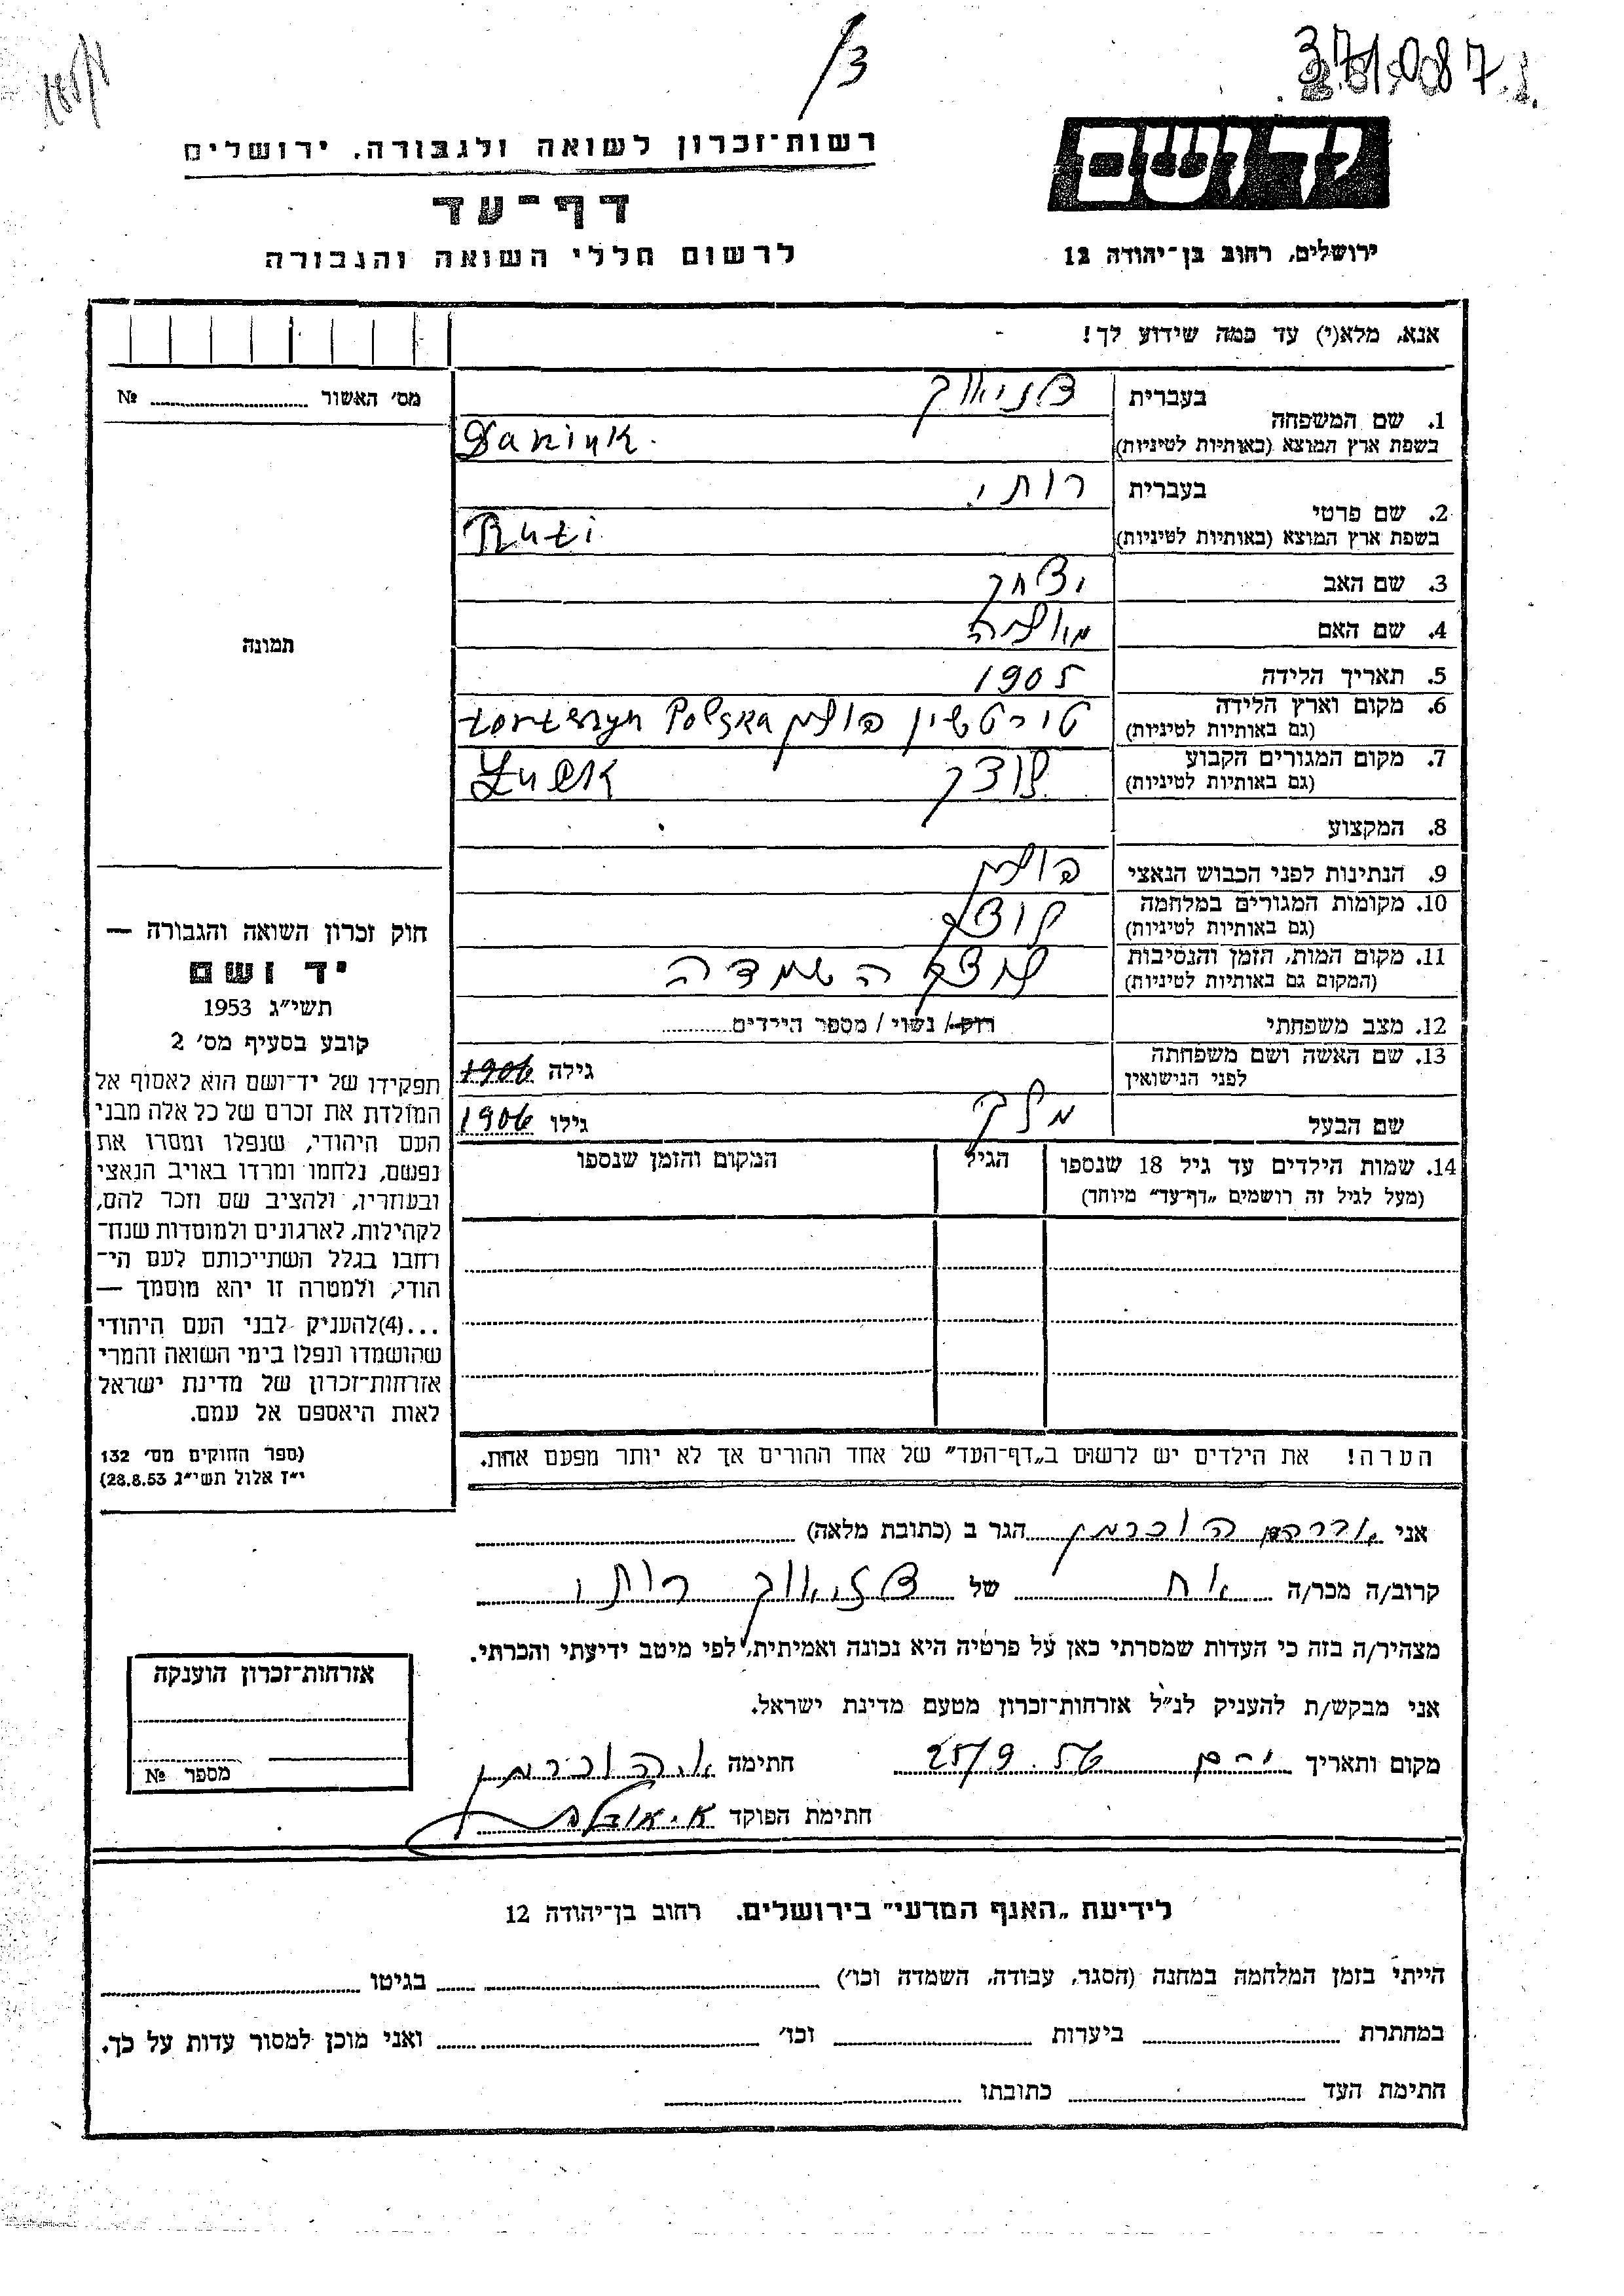 /3
371087
רשות־זכרון לשואה ולגבורה, ירושלים
דף־עד
לרשום חללי השואה והגבורה
יד ושם
ירושלים, רחוב בן־יהודה 12
אנא, מלא(י) עד כמה שידוע לך!
מס׳ האשור № 
תמונה
1. שם המשפחה בעברית
בשפת ארץ המוצא (באותיות לטיניות) Daniuk
2. שם פרטי בעברית רותי
בשפת ארץ המוצא (באותיות לטיניות) Ruti
3. שם האב יצחק
4. שם האם
5. תאריך הלידה 1905
6. מקום וארץ הלידה
(גם באותיות לטיניות) Polska
7. מקום המגורים הקבוע
(גם באותיות לטיניות)
8. המקצוע
9. הנתינות לפני הכבוש הנאצי פולין
10. מקומות המגורים במלחמה
(גם באותיות לטיניות)
11. מקום המות, הזמן והנסיבות
(המקום גם באותיות לטיניות) השמדה
12. מצב משפחתי רוק / נשוי / מספר הילדים
13. שם האשה ושם משפחתה
לפני הנישואין גילה 1906
שם הבעל גילו 1906
14. שמות הילדים עד גיל 18 שנספו הגיל המקום והזמן שנספו
(מעל לגיל זה רושמים „דף־עד״ מיוחד)
הערה! את הילדים יש לרשום ב„דף־העד״ של אחד ההורים אך לא יותר מפעם אחת.
חוק זכרון השואה והגבורה —
יד ושם
תשי״ג 1953
קובע בסעיף מס׳ 2
תפקידו של יד־ושם הוא לאסוף אל
המולדת את זכרם של כל אלה מבני
העם היהודי, שנפלו ומסרו את
נפשם, נלחמו ומרדו באויב הנאצי
ובעוזריו, ולהציב שם וזכר להם,
לקהילות, לארגונים ולמוסדות שנח־
רחבו בגלל השתייכותם לעם הי־
הודי, ולמטרה זו יהא מוסמך —
...(4)להעניק לבני העם היהודי
שהושמדו ונפלו בימי השואה והמרי
אזרחות־זכרון של מדינת ישראל
לאות היאספם אל עמם.
(ספר החוקים מס׳ 132
י״ז אלול תשי״ג 28.8.53)
אני אברהם הוכרמן הגר ב (כתובת מלאה)
קרוב/ה מכר/ה אח של רותי
מצהיר/ה בזה כי העדות שמסרתי כאן על פרטיה היא נכונה ואמיתית, לפי מיטב ידיעתי והכרתי.
אני מבקש/ת להעניק לנ״ל אזרחות־זכרון מטעם מדינת ישראל.
מקום ותאריך 25/9.56 חתימה א. הוכרמן
חתימת הפוקד
אזרחות־זכרון הוענקה
מספר №
לידיעת „האגף המדעי״ בירושלים. רחוב בן־יהודה 12
הייתי בזמן המלחמה במחנה (הסגר, עבודה, השמדה וכו׳) בגיטו
במחתרת ביערות וכו׳ ואני מוכן למסור עדות על כך.
חתימת העד כתובתו